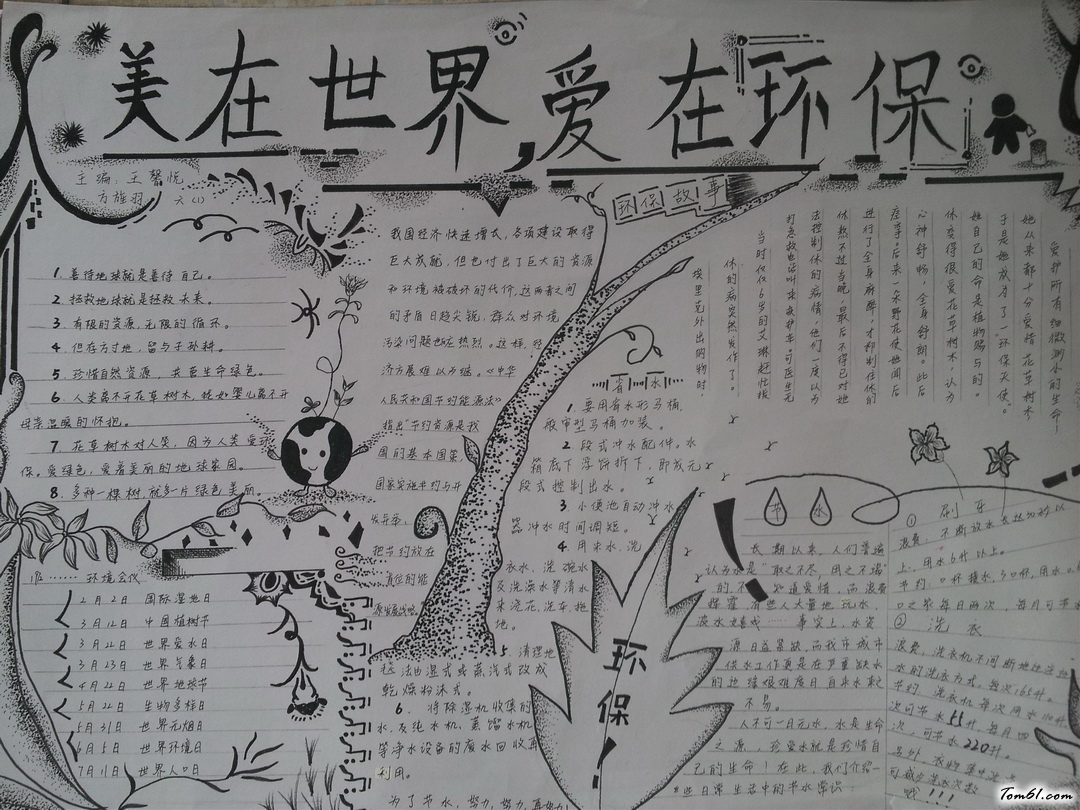 美在世界,爱在环保
主编:王馨悦
方旌羽 六(1)
1. 善待地球就是善待自己。
2. 拯救地球就是拯救未来。
3. 有限的资源,无限的循环。
4. 但存方寸地,留与子孙耕。
5. 珍惜自然资源,共营生命绿色。
6. 人类离不开花草树木,犹如婴儿离不开
母亲温暖的怀抱。
7. 花草树木对人笑,因为人类爱环
保。爱绿色,爱着美丽的地球家园。
8. 多种一棵树,就多一片绿色美丽。
环境会代
2月2日 国际湿地日
3月12日 中国植树节
3月22日 世界爱水日
3月23日 世界气象日
4月22日 世界地球节
5月22日 生物多样日
5月31日 世界无烟日
6月5日 世界环境日
7月11日 世界人口日
我国经济快速增长,各项建设取得
巨大成就,但也付出了巨大的资源
和环境被破坏的代价,这两者之间
的矛盾日趋尖锐,群众对环境
污染问题也反应热烈。这样,经
济方展难以为继。《中华
人民共和国节约能源法》
指出"节约资源是我
国的基本国策,
国家实施节约与开
发并举、
把节约放在
首位的能
源发展战略。
环保故事
爱护所有细微渺小的生命!
她从来都十分爱惜花草树木,
于是她成为了一环保天使。
她自己的命是植物赐与的。
休变得很爱花草树木,认为
心神舒畅,全身舒朗。此后
痊季。后来一朵野花使她闻后
进行了全身麻醉,才抑制住休的
休熬不过当晚。最后不得已对她
法控制休的病情,他们一度认为
打急救电话叫来救护车。可医生无
当时仅仅6岁的艾琳赶忙拨
休的病突然发作了。
埃里克外出购物时,
省水
1. 要用省水形马桶,
般审型马桶加装。
2. 段式冲水配件。水
箱底下浮饼拆下,即成无
段式控制出水。
3. 小便池自动冲水
器冲水时间调短。
4. 用米水、洗
衣水、洗碗水
及洗澡水等清水
来浇花、洗车、拖
地。
5. 清理地
毯法由湿式或蒸汽式改成
乾燥粉沫式。
6. 将除湿机收集的
水,及纯水机、蒸馏水机
等净水设备的废水回收再
利用。
为了节水,努力,努力,再努力!
环保!
节水
长期以来,人们普遍
认为水是"取之不尽,用之不竭"
的,不知道爱惜,而浪费
挥霍。有些人大量地玩水,
泼水嬉戏……事实上,水资
源日益紧缺,而我市城市
供水工作更是在严重缺水
的边缘艰难度日,自来水来之
不易。
人不可一日无水,水是生命
之源,珍爱水就是珍惜自
己的生命!在此,我们介绍一
些日常生活中的节水常识:
① 刷牙
浪费:不断放水长达30秒以
上,用水6升以上。
节约:口杯接水,3口杯,用水0.6
② 洗衣
浪费:洗衣机不间断地边注地
水的洗衣方式,每次165升。
节约:洗衣机每次用水110升
次,可节水55升,每月四
次,可节水220升。
另外,衣物集中洗
Tom61.com